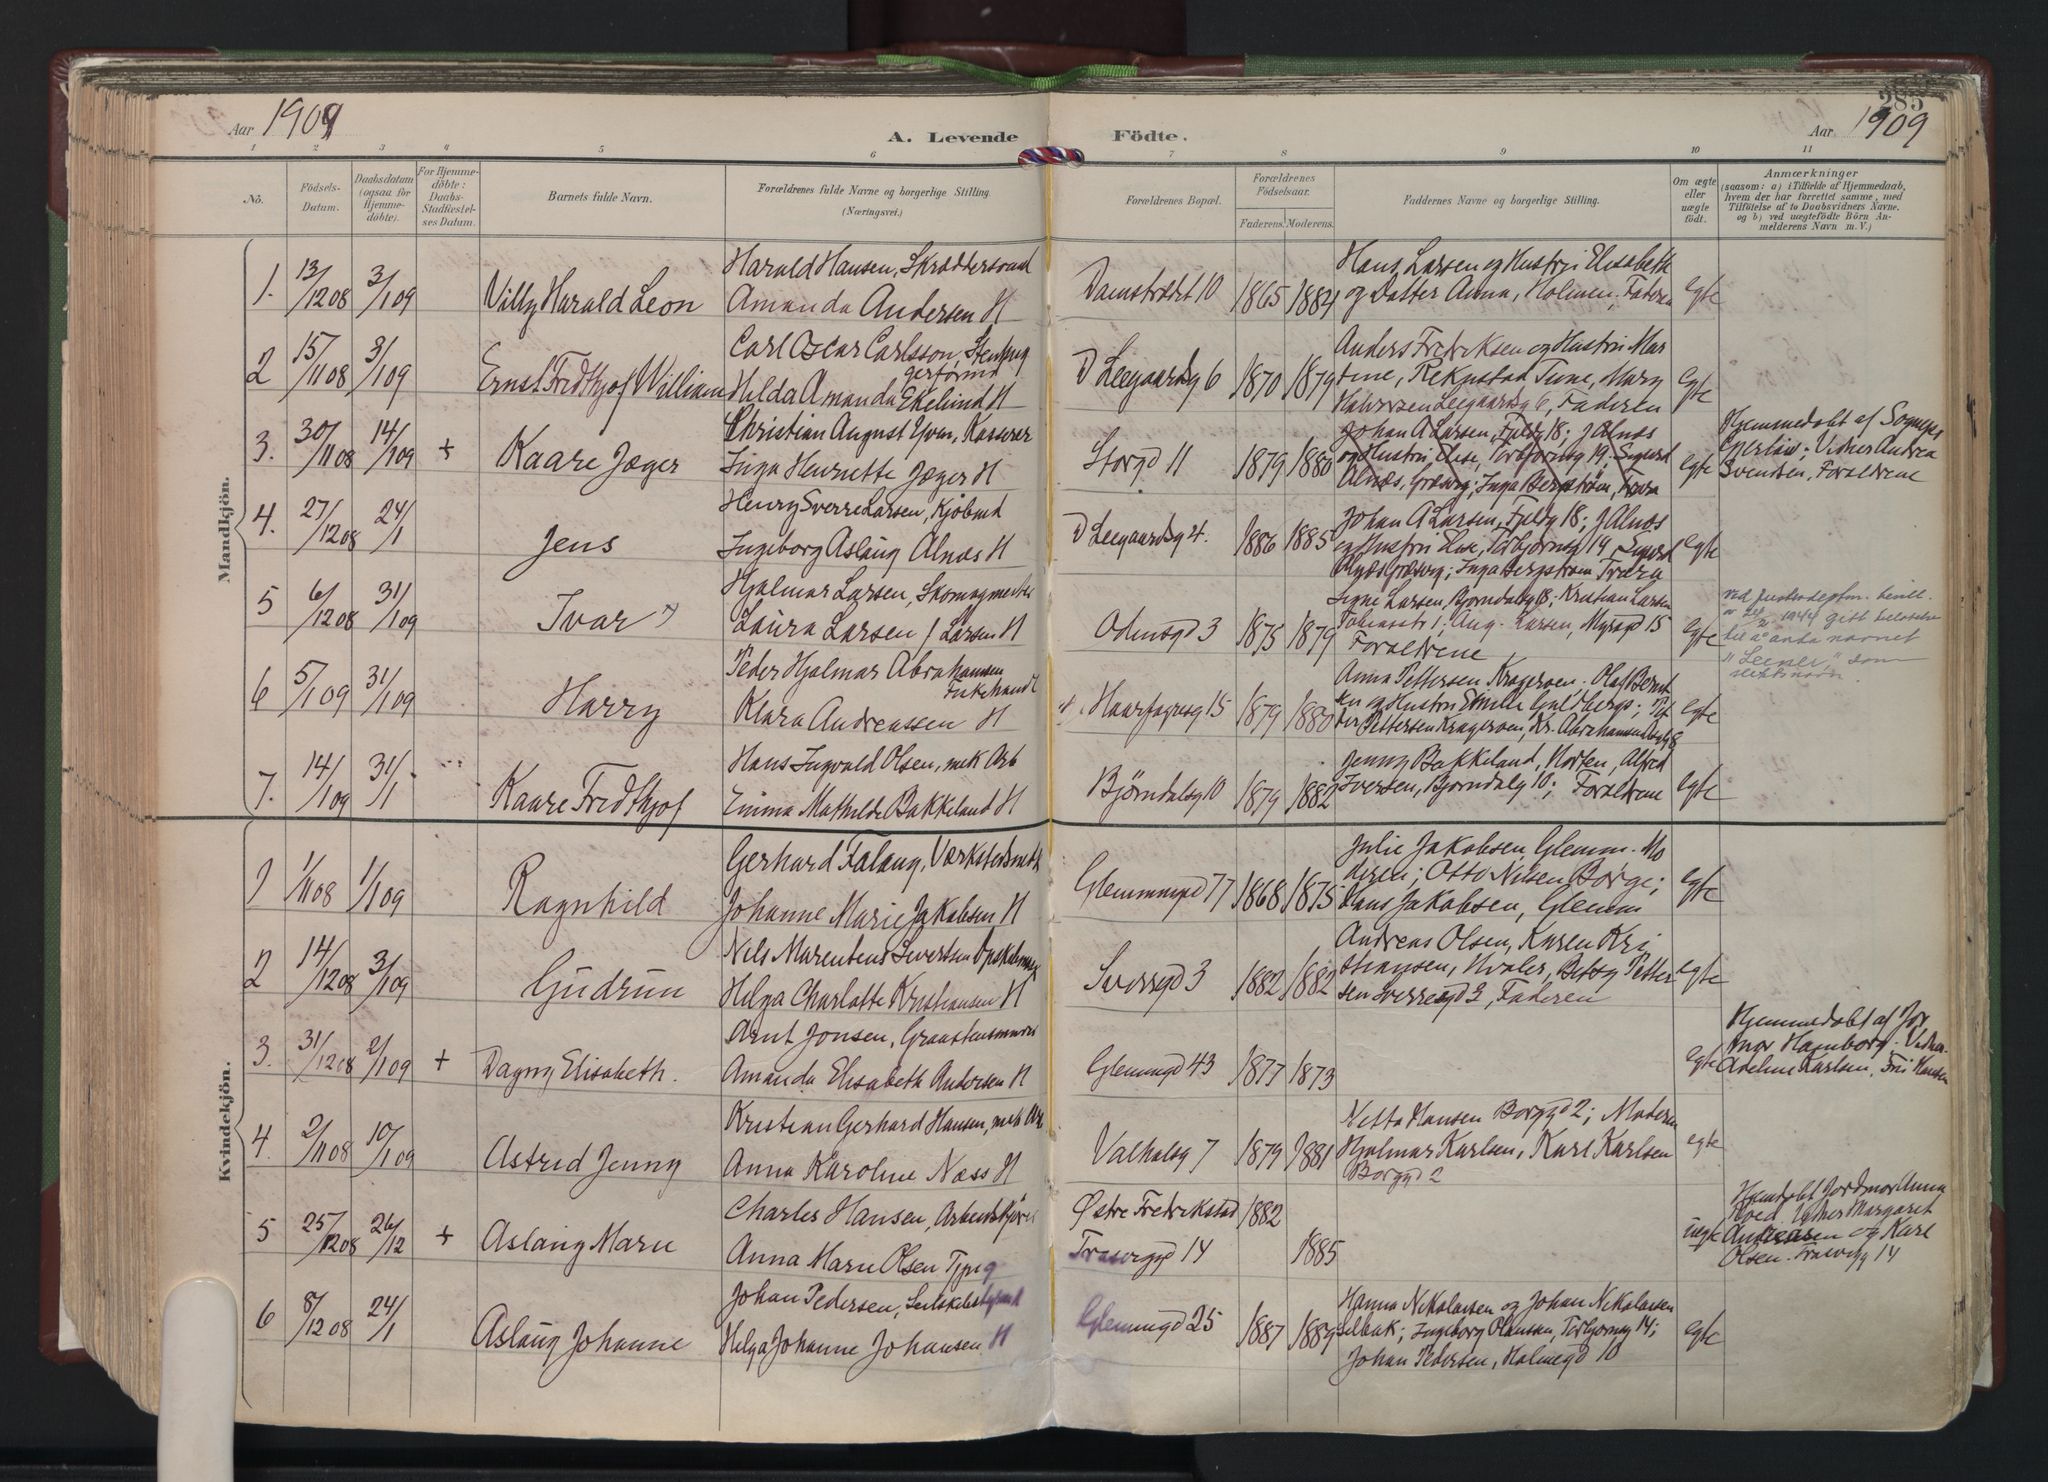 285
Aar 1909
A. Levende
Födte.
Aar 1909
1 2 3 4 5 6 7 8 9 10 11
No.
Födsels-
Datum.
Daabsdatum
(ogsaa for
Hjemme-
döbte).
For Hjemme-
döbte:
Daabs-
Stadfæstel-
ses Datum.
Barnets fulde Navn.
Forældrenes fulde Navne og borgerlige Stilling.
(Næringsvei.)
Forældrenes Bopæl.
Forældrenes
Födselsaar.
Faderens. Moderens.
Faddernes Navne og borgerlige Stilling.
Om ægte
eller
uægte
födt.
Anmærkninger
(saasom: a) i Tilfælde af Hjemmedaab,
hvem der har forrettet samme, med
Tilföielse af to Daabsvidners Navne.
og b) ved uægtefödte Börn An-
melderens Navn m. V.)
Mandkjön.
1. 13/12 08 3/1 09
Villy Harald Leon
Harald Hansen, Skræddersvend
Amanda Andersen H
Damstrædet 10 1865 1884
Hans Larsen og Hustru Elisabeth
og Datter Anna, Holmen; Faderen
egte
2 15/11 08 3/1 09
Ernst Fredthjof William
Carl Oscar Carlsson, Stenhug
gerformd
Hilda Amanda Ekelund H
D Leegaardsg 6 1870 1879
Anders Fredriksen og Hustru Mar
tine, Rekustad Tune, Mary
Halvorsen Leegaardsg 6, Faderen
egte
3. 30/11 08 14/1 09 +
Kaare Jæger
Christian August Yven, Kasserer
Inga Henriette Jæger H
Storgd 11 1879 1880
Johan A Larsen, Fjeldg 18; J Alnæs
og Hustru Elise, Torbjørnsg 19, Sigurd
Alnæs, Græsvig; Inga Bergstrøm, Trara
egte
Hjemmedøbt af Sognepr
Gjerløw; Vidner Andrea
Svendsen, Forældrene
4. 27/12 08 24/1
Jens
Henry Sverre Larsen, Kjøbmd
Ingeborg Aslaug Alnæs H
D Leegaardsg 4. 1886 1885
Johan A Larsen, Fjeldg 18; J Alnæs
og Hustru Elise, Torbjørnsg 19, Sigurd
Alnæs Græsvig; Inga Bergstrøm Trara
egte
5 6/12 08 31/1 09
Ivar
Hjalmar Larsen, Skomagmester
Laura Larsen f Larsen H
Odinsgd 3 1875 1879
Signe Larsen, Bjørndalsg 18; Kristian Larsen
Tomasstr 1; Aug. Larsen, Myragd 15
Forældrene
egte
ved justisdeptm. bevill.
1944 gitt tillatelse
til å anta navnet
"Leener," som
slektsnavn.
6 5/1 09 31/1 09
Harry
Peder Hjalmar Abrahamsen
Fiskehandl
Klara Andreassen H
Haarfagresg 15 1879 1880
Anna Pettersen Kragerøen. Olaf Bernt
sen og Hustru Emilie Guldbergs; Pet
der Pettersen Kragerøen, Kr. Abrahamsen
egte
7. 14/1 09 31/1
Kaare Fredthjof
Hans Ingvald Olsen, mek Arb
Emma Mathilde Bakkeland H
Bjørndalsg 10 1879 1882
Jenny Bakkeland, Horten, Alfred
Iversen, Bjørndalsg 10; Forældrene
egte
Kvindekjön.
1 1/11 08 1/1 09
Ragnhild
Gerhard Falang, Værkstedsmstr
Johanne Marie Jakobsen H
Glemmngd 77 1868 1875
Julie Jakobsen, Glemm. Mo
deren; Otto Nilsen Borge;
Hans Jakobsen, Glemm
egte
2 14/12 08 3/1 09
Gudrun
Nils Marentius Sivertsen
Helga Charlotte Kristiansen H
Sverregd 3 1882 1882
Andreas Olsen, Karen Kri
stiansen, Hvaler, Betsy Petter
sen Sverregd 3, Faderen
egte
3. 31/12 08 2/1 09 +
Dagny Elisabeth.
Arnt Jonsen, Graastensminer
Amanda Elisabeth Andersen H
Glemmgd 43 1877 1873
egte
Hjemmedøbt af Jor
mor Hamborg. Vidner
Adeline Karlsen, Fru Hansen
4. 2/11 08 10/1 09
Astrid Jenny
Kristian Gerhard Hansen, mek Arb
Anna Karoline Næss H
Valhalsg 7 1879 1881
Netta Hansen Borggd 2; Moderen
Hjalmar Karlsen, Karl Karlsen
Borggd 2
egte
5 25/12 08 26/12 +
Aslaug Marie
Charles Hansen, Arbeidskjører
Anna Marie Olsen Tjpig
Østre Fredrikstad 1882
Trosviggd 14 1885
uegte
Hjemdøbt Jordmor Anna
Hoed. Vidner Margaret
Andreasen og Karl
Olsen. Trosvigg 14
6 8/12 08 24/1
Aslaug Johanne
Johan Pedersen, Seilskibstyrmd
Helga Johanne Johansen H
Glemmgd 25 1887 1889
Hanna Nikolaisen og Johan Nikolaisen
Selbak; Ingeborg Olaussen, Torbjørnsg 14;
Johan Pedersen, Holmegd 10
egte